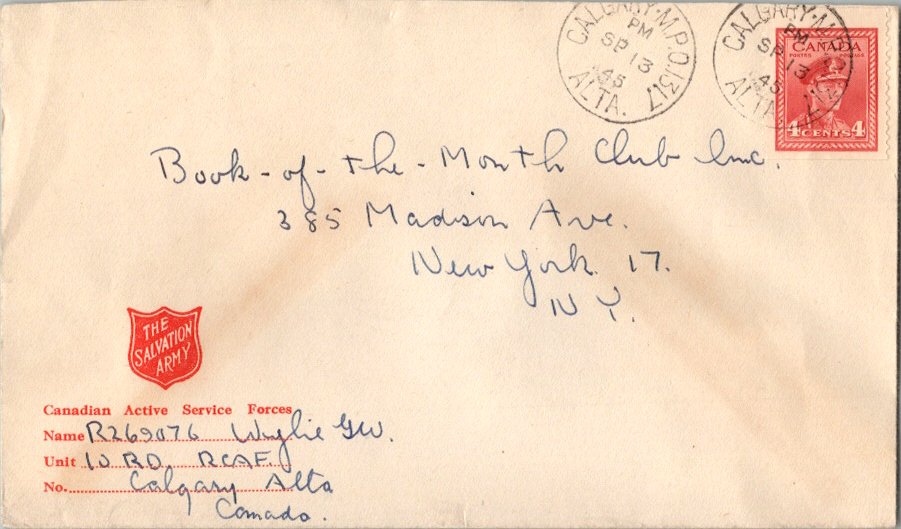 CALGARY·M.P.O.1317
PM
SP 13
45
ALTA.
CALGARY·M.P.O.1317
PM
SP 13
45
ALTA.
CANADA
POSTES POSTAGE
4 CENTS 4
Book-of-the-Month Club Inc.
385 Madison Ave.
New York 17.
N Y.
THE
SALVATION
ARMY
Canadian Active Service Forces
Name R269076 Wylie GW.
Unit 10 RD RCAF
No. Calgary Alta
Canada.